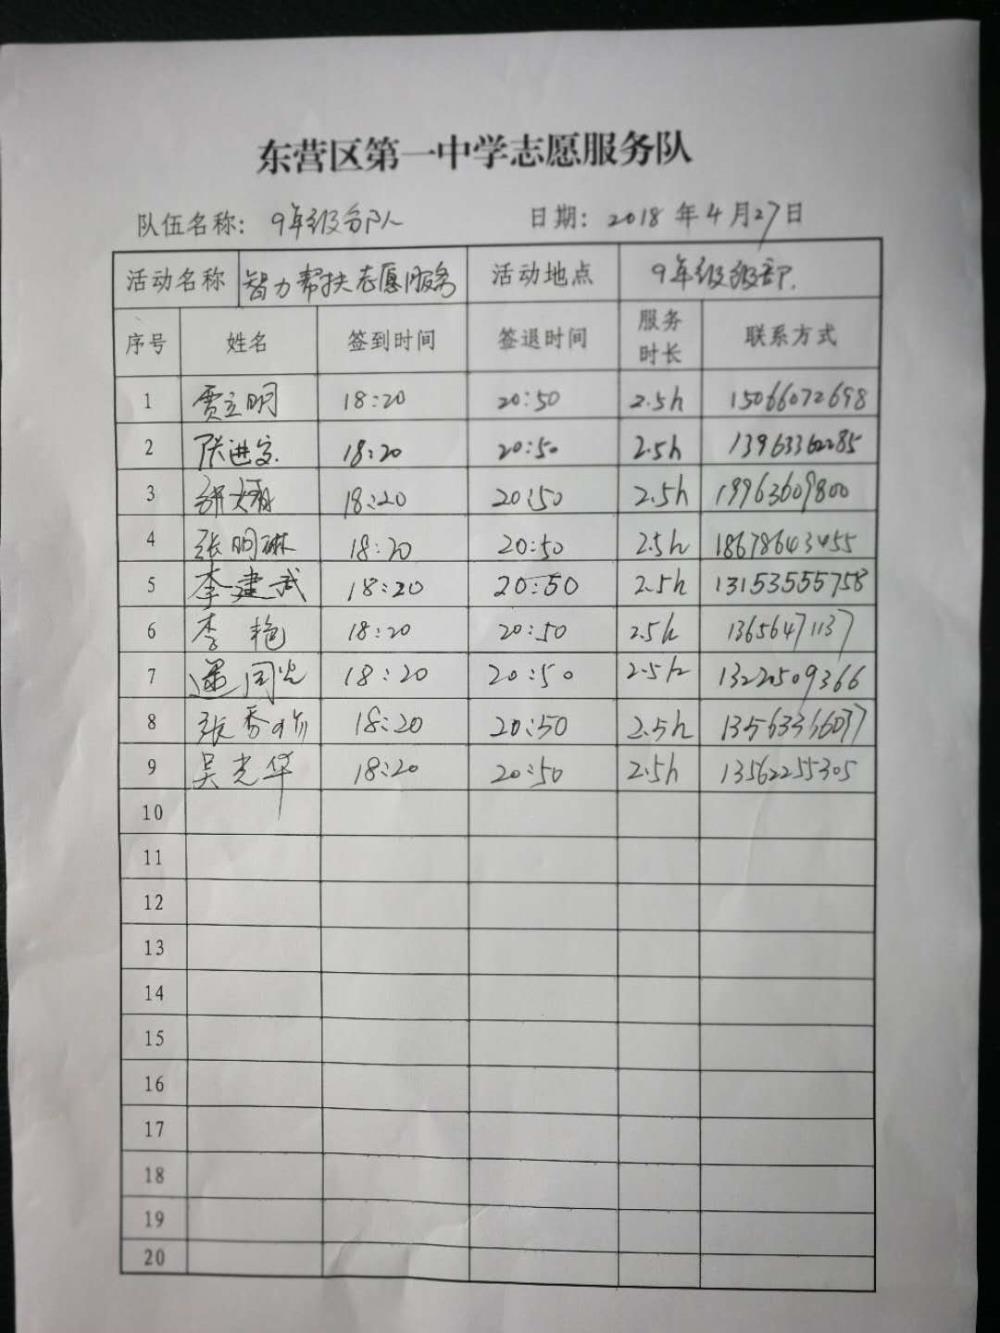 东营区第一中学志愿服务队
队伍名称: 9年级分队 日期: 2018年4月27日
活动名称 智力帮扶志愿服务 活动地点 9年级级部.
序号 姓名 签到时间 签退时间 服务时长 联系方式
1 贾立明 18:20 20:50 2.5h 15066072698
2 张进 18:20 20:50 2.5h 13963362285
3 18:20 20:50 2.5h 19963609800
4 张明琳 18:20 20:50 2.5h 18678643455
5 李建武 18:20 20:50 2.5h 13153555758
6 李艳 18:20 20:50 2.5h 13656471137
7 18:20 20:50 2.5h 13222509366
8 张秀 18:20 20:50 2.5h 13563366037
9 吴光华 18:20 20:50 2.5h 13562255305
10
11
12
13
14
15
16
17
18
19
20